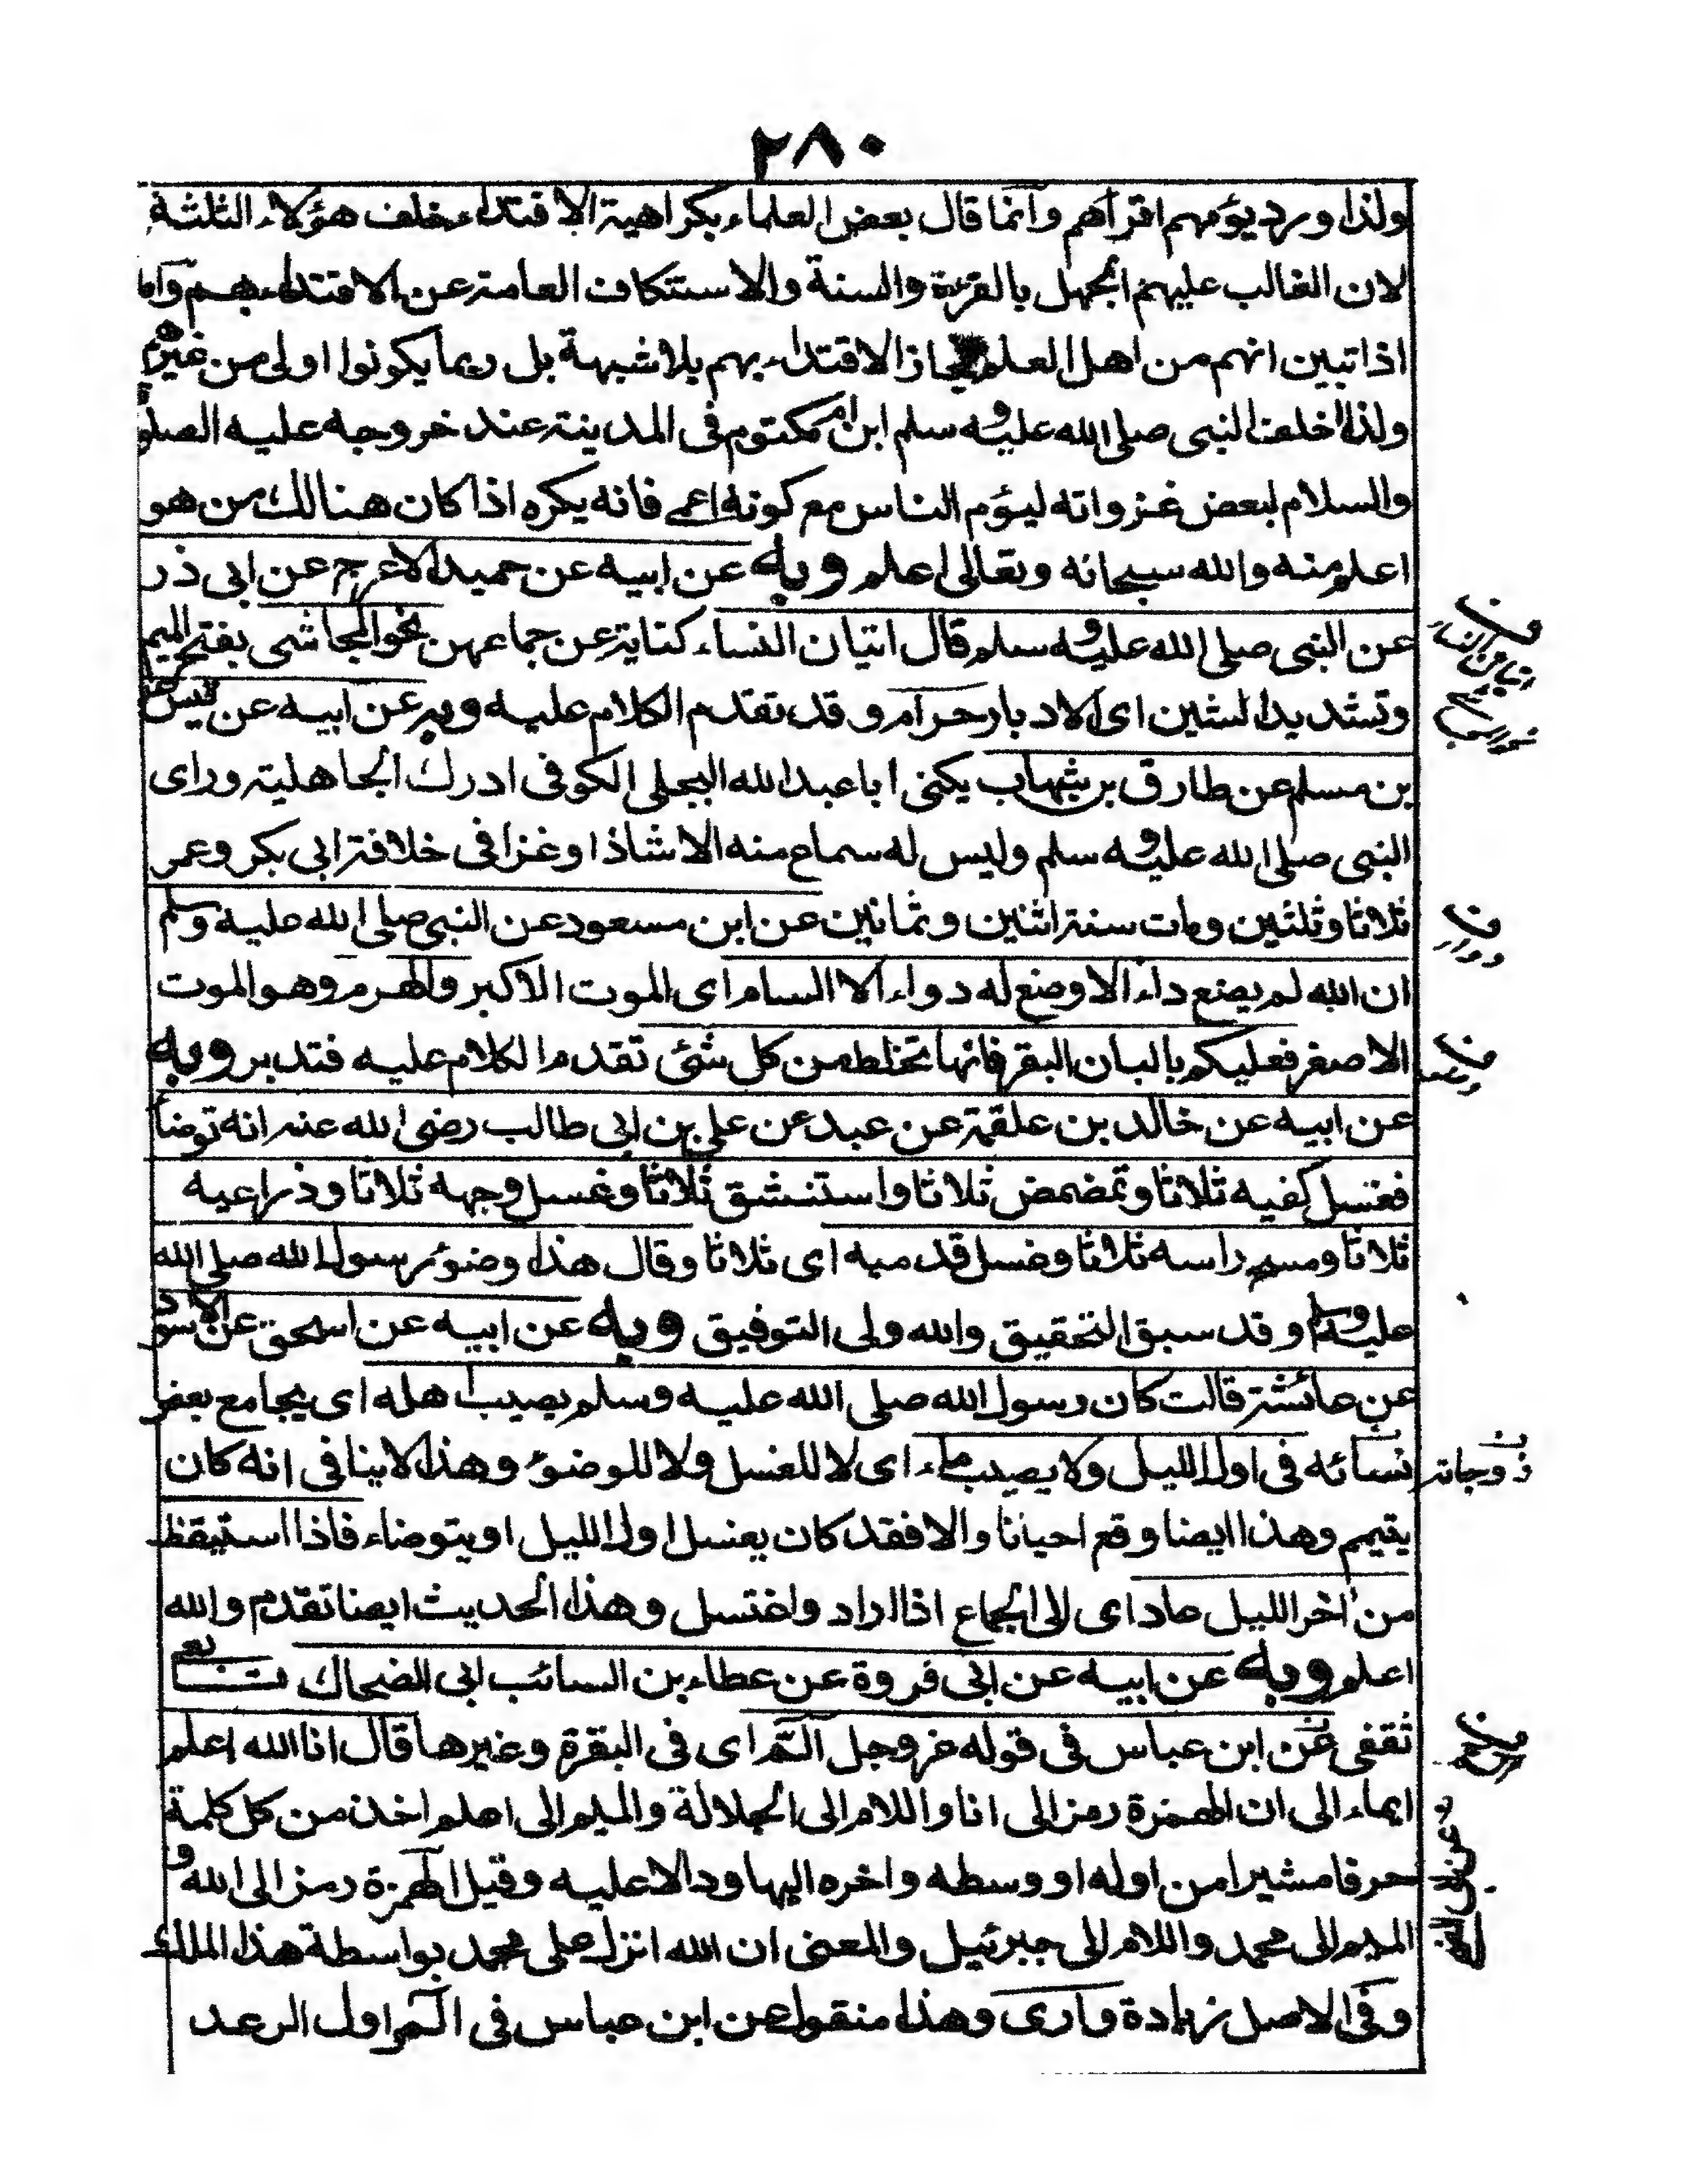 ٢٨٠
ولذا ورد يؤمهم اقرأهم وانما قال بعض العلماء بكراهية الاقتداء خلف هؤلاء الثلثة
لان الغالب عليهم الجهل بالقرءة والسنة والاستنكاف العامة عن الاقتداء بهم واما
اذا تبين انهم من اهل العلم جاز الاقتداء بهم بلا شبهة بل ربما يكونوا اولى من غيرهم
ولذا اخلف النبى صلى الله عليه وسلم ابن ام مكتوم فى المدينة عند خروجه عليه الصلو
والسلام لبعض غزواته ليؤم الناس مع كونه اعمى فانه يكره اذا كان هنالك من هو
اعلم منه والله سبحانه وتعالى اعلم وبه عن ابيه عن حميد الاعرج عن ابى ذر
عن النبى صلى الله عليه وسلم قال اتيان النساء كناية عن جماعهن نحو المحاشى بفتح الميم
وتشديد الشين اى الادبار حرام وقد تقدم الكلام عليه وبه عن ابيه عن قيس
بن مسلم عن طارق بن شهاب يكنى ابا عبد الله البجلى الكوفى ادرك الجاهلية وراى
النبى صلى الله عليه وسلم وليس له سماع منه الا شاذا وغزا فى خلافة ابى بكر وعمر
ثلاثا وثلثين ومات سنة اثنين وثمانين عن ابن مسعود عن النبى صلى الله عليه وسلم
ان الله لم يضع داء الا وضع له دواء الا السام اى الموت الاكبر والهرم وهو الموت
الاصغر فعليكم بالبان البقر فانها تخلط من كل شئ تقدم الكلام عليه فتدبر وبه
عن ابيه عن خالد بن علقمة عن عبد عن على بن ابى طالب رضى الله عنه انه توضأ
فغسل كفيه ثلاثا وتمضمض ثلاثا واستنشق ثلاثا وغسل وجهه ثلاثا وذراعيه
ثلاثا ومسح راسه ثلاثا وغسل قدميه اى ثلاثا وقال هذا وضوء رسول الله صلى الله
عليه وسلم وقد سبق التحقيق والله ولى التوفيق وبه عن ابيه عن اسحق عن الاسود
عن عائشة قالت كان رسول الله صلى الله عليه وسلم يصيب اهله اى يجامع بعض
نسائه فى اول الليل ولا يصيب ماء اى لا للغسل ولا للوضوء وهذا لا ينافى انه كان
زوجاته
يتيمم وهذا ايضا وقع احيانا والا فقد كان يغسل اول الليل او يتوضاء فاذا استيقظ
من اخر الليل عاد اى الى الجماع اذا اراد واغتسل وهذا الحديث ايضا تقدم والله
اعلم وبه عن ابيه عن ابى فروة عن عطاء بن السائب ابى الضحاك
ثقفى عن ابن عباس فى قوله عز وجل الم اى فى البقرة وغيرها قال انا الله اعلم
ايماء الى ان الهمزة رمز الى انا واللام الى الجلالة والميم الى اعلم اخذ من كل كلمة
حرفا مشيرا من اوله او وسطه واخره اليها ودالا عليه وقيل الهمزة رمز الى الله و
الميم الى محمد واللام الى جبرئيل والمعنى ان الله انزل على محمد بواسطة هذا الملك
وفى الاصل زيادة وارى وهذا منقول عن ابن عباس فى المر اول الرعد